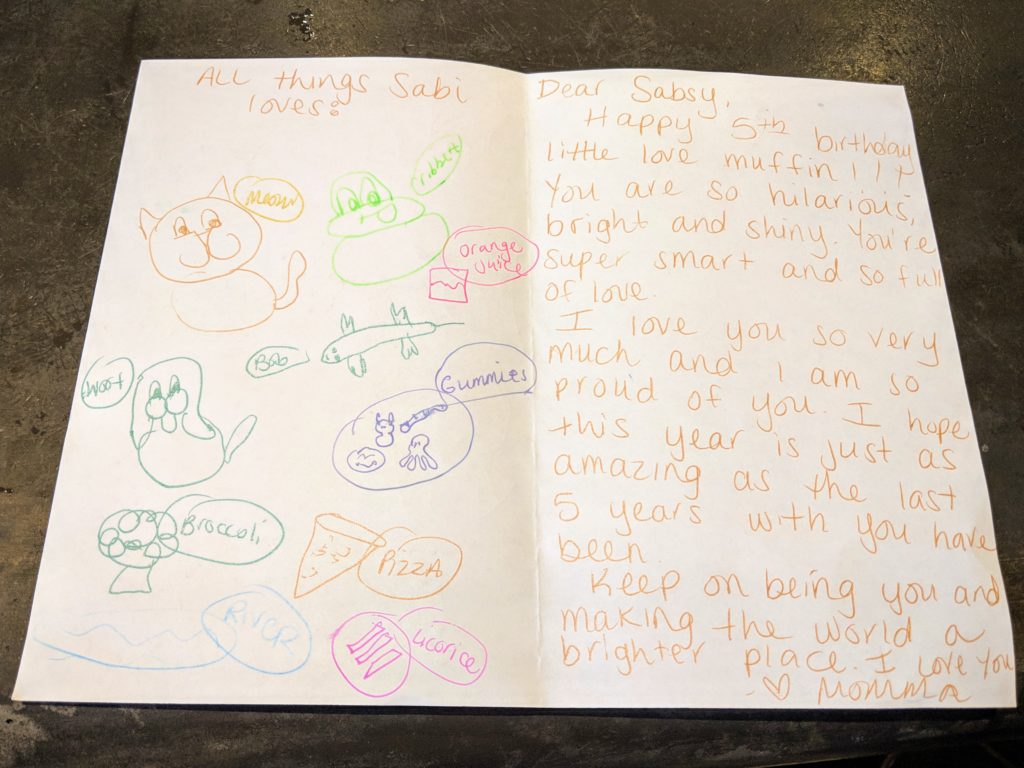 ALL things Sabi
loves:
Meow
ribbet
orange
juice
Bob
Woof
Gummies
Broccoli
PIZZA
RIVER
licorice
Dear Sabsy,
Happy 5th birthday
little love muffin !!!
You are so hilarious,
bright and shiny. You're
super smart and so full
of love.
I love you so very
much and I am so
proud of you. I hope
this year is just as
amazing as the last
5 years with you have
been.
Keep on being you and
making the world a
brighter place. I love you
♡ Momma